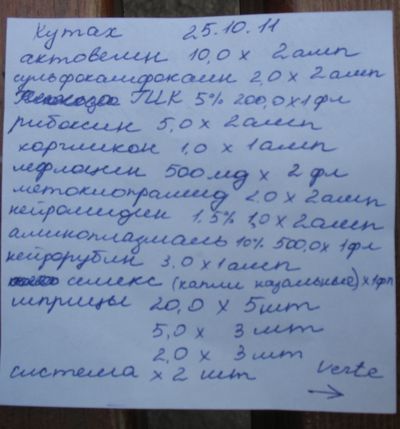 Хутах 25.10.11
актовегин 10,0 x 2 амп
сульфокамфокаин 2,0 x 2 амп
ГИК 5% 200,0 x 1 фл
рибоксин 5,0 x 2 амп
коргликон 1,0 x 1 амп
лефлоцин 500 мд x 2 фл
метоклопрамид 2,0 x 2 амп
нейромидин 1,5% 1,0 x 2 амп
аминоплазмаль 10% 500,0 x 1 фл
нейрорубин 3,0 x 1 амп
семакс (капли назальные) x 1 фл
шприцы 20,0 x 5 шт
5,0 x 3 шт
2,0 x 3 шт
система x 2 шт verte
→